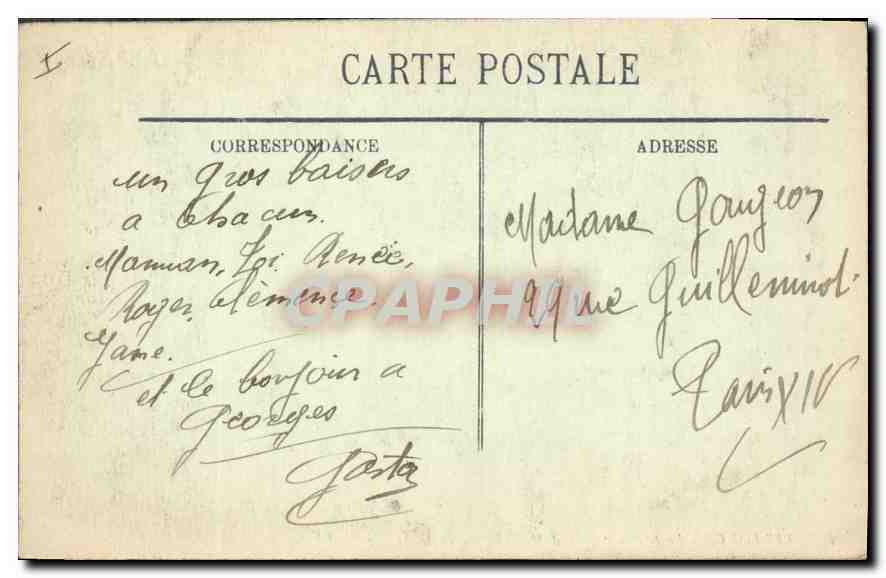 CARTE POSTALE
CORRESPONDANCE
un gros baisers
a chacun.
Maman, Toi. Renée,
Roger, Clémence.
Jane.
et le bonjour a
Georges
ADRESSE
Madame Gougeon
rue Guilleminot.
Paris XIV
CPAPHIL